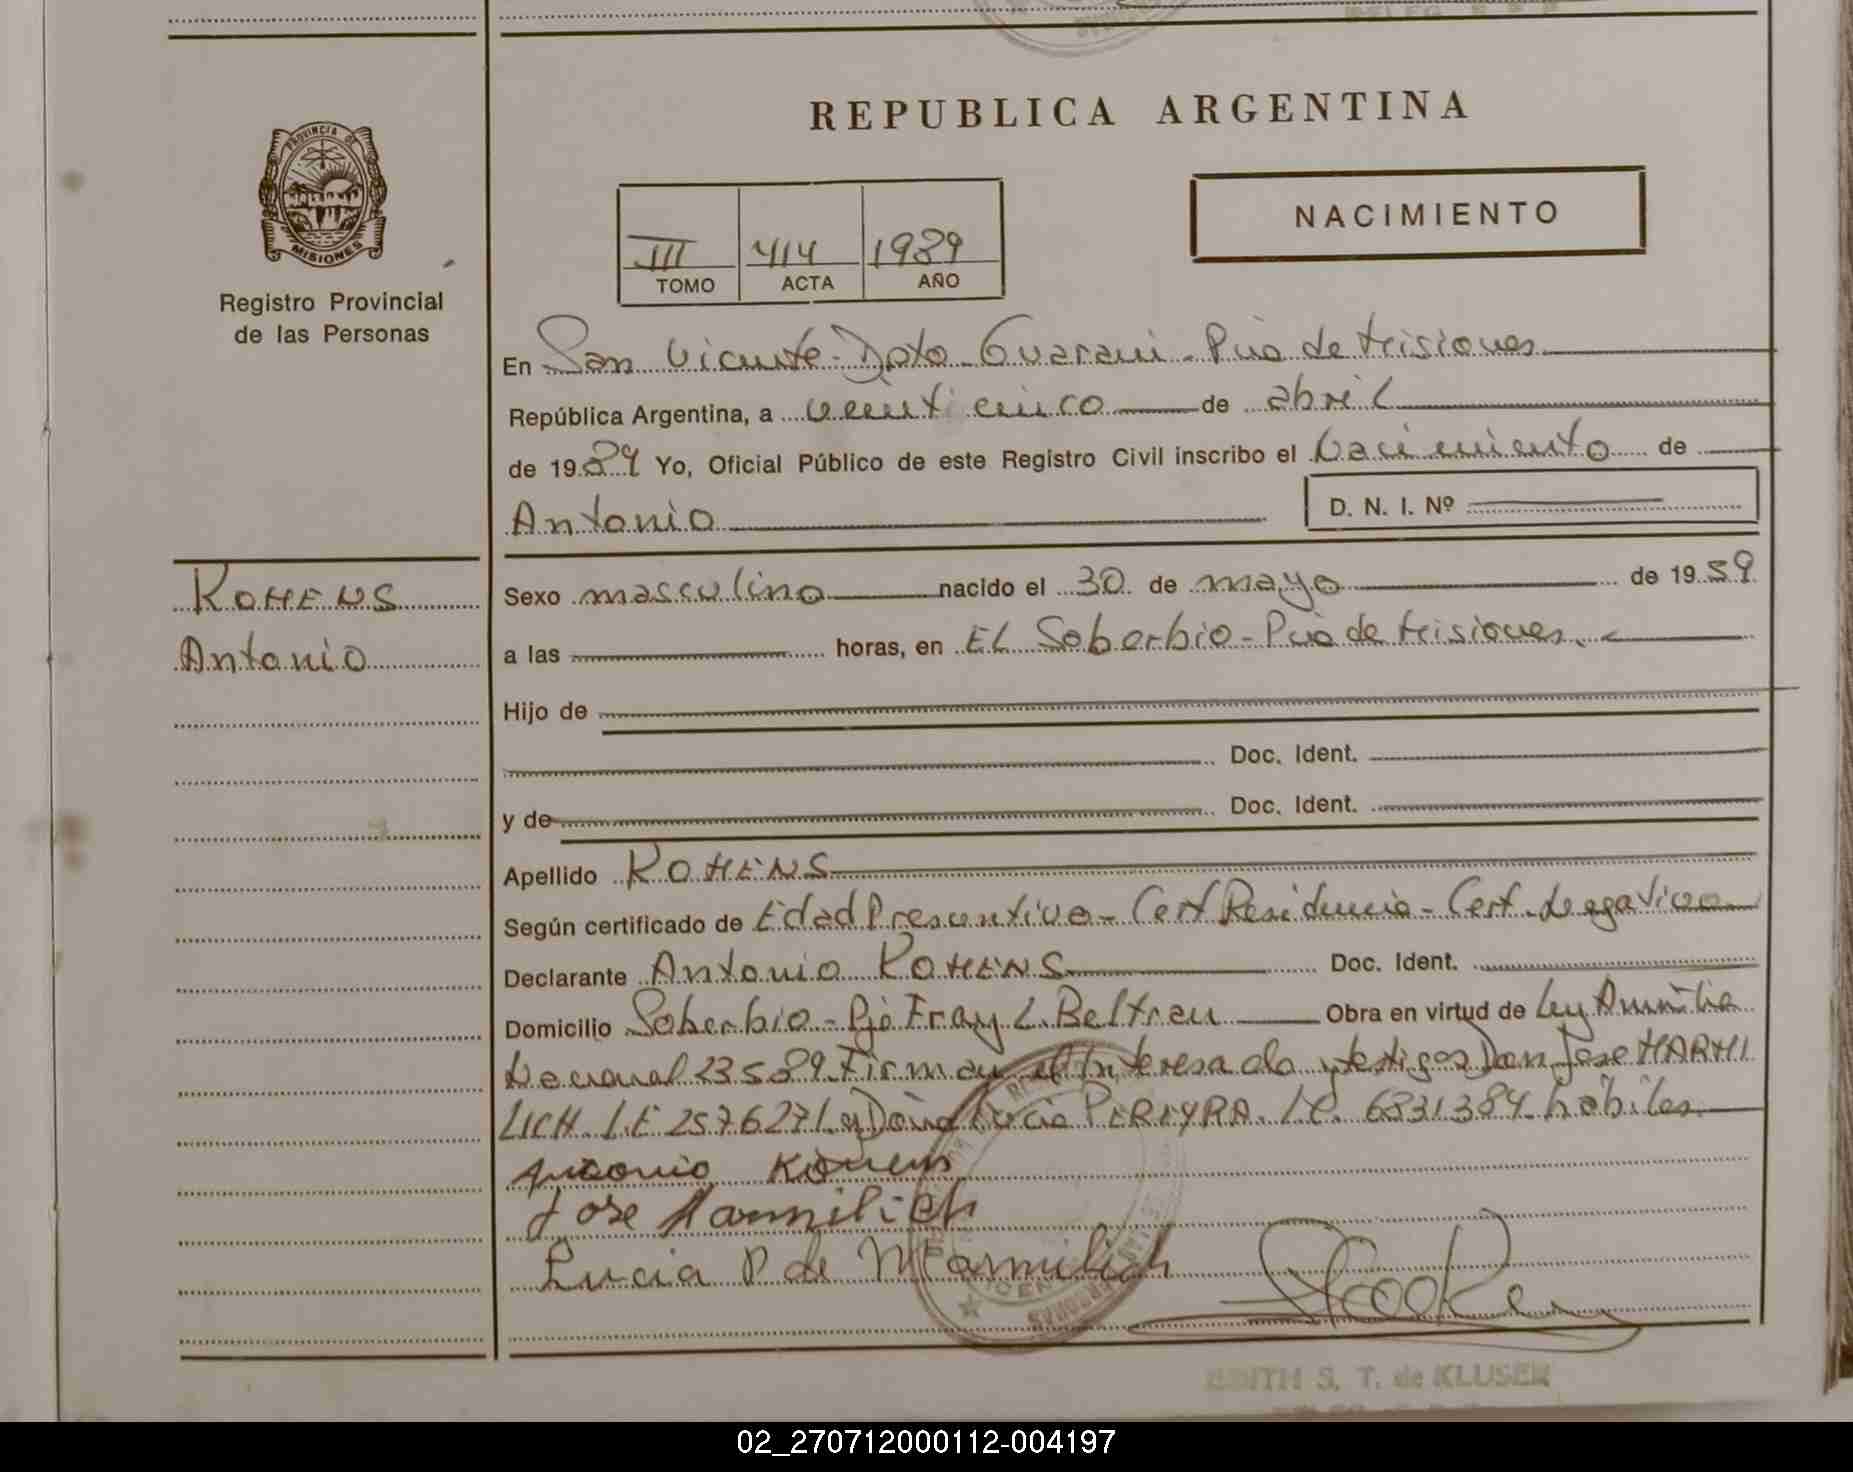 REPUBLICA ARGENTINA
PROVINCIA DE
MISIONES
Registro Provincial
de las Personas
NACIMIENTO
III 414 1989
TOMO ACTA AÑO
En San Vicente - Dpto Guarani - Pcia de Misiones
República Argentina, a veinticinco de abril
de 1989 Yo, Oficial Público de este Registro Civil inscribo el Nacimiento de
Antonio D. N. I. Nº
KOHENS
Antonio
Sexo masculino nacido el 30 de mayo de 1959
a las horas, en EL Soberbio - Pcia de Misiones.
Hijo de
Doc. Ident.
y de Doc. Ident.
Apellido KOHENS
Según certificado de Edad Presuntiva - Cert Residencia - Cert. Negativo
Declarante Antonio KOHENS Doc. Ident.
Domicilio Soberbio - Pje Fray L. Beltran Obra en virtud de Ley Amnistia
Nacional 23589. Firman el Interesado y testigos Don Jose MARMI
LICH L.E 2576271 y Doña Lucia PEREYRA. L.C. 6831384 hábiles.
Antonio Kohens
Jose Marmilich
Lucia P de Marmilich
EDITH S. T. de KLUSEN
02_270712000112-004197